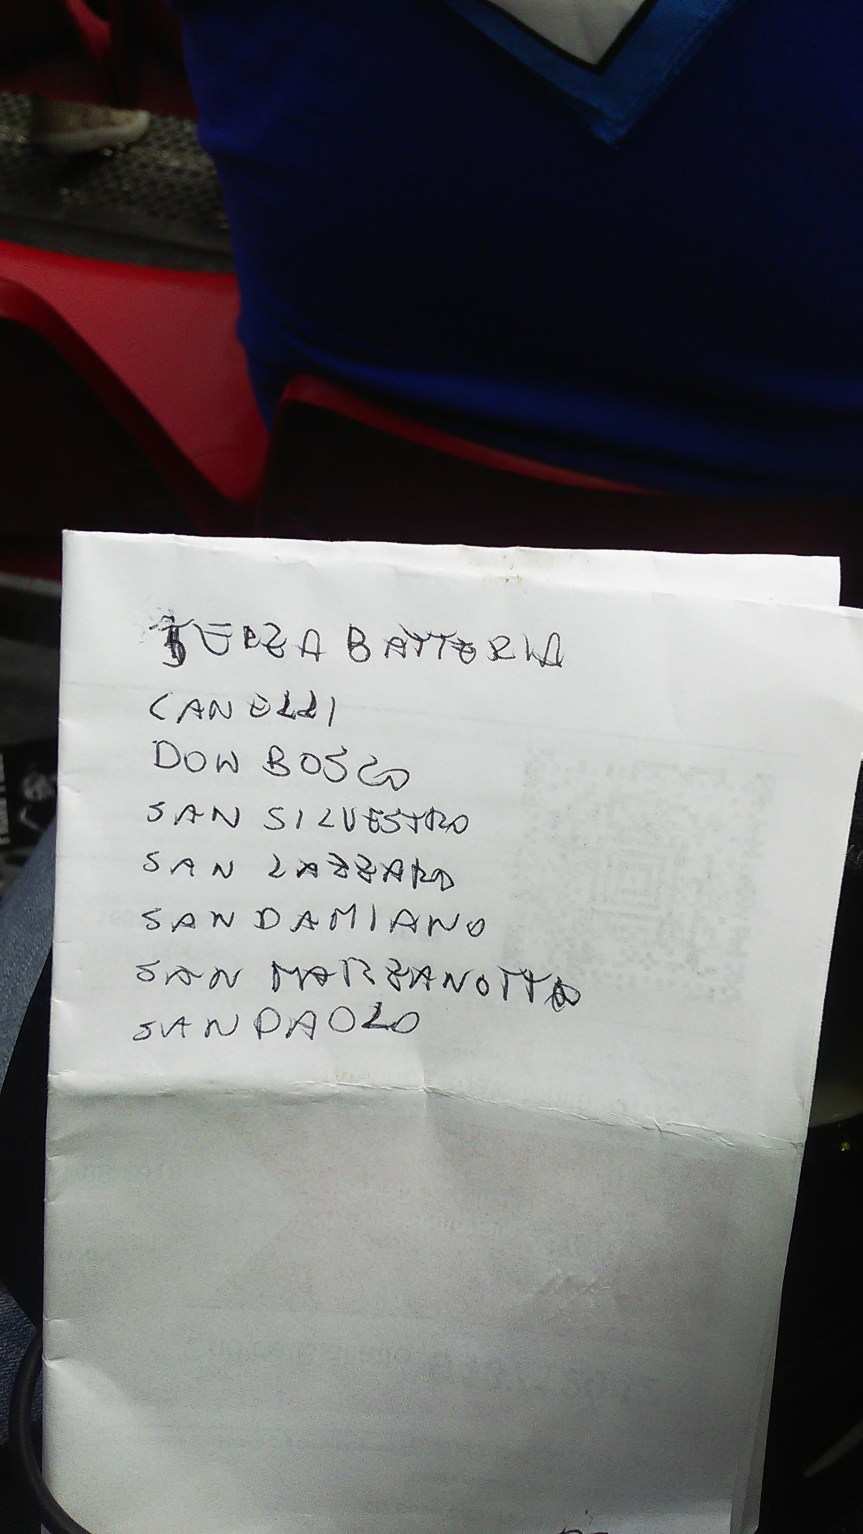 TERZA BATTERIA
CANELLI
DON BOSCO
SAN SILVESTRO
SAN LAZZARO
SAN DAMIANO
SAN MARZANOTTO
SAN PAOLO